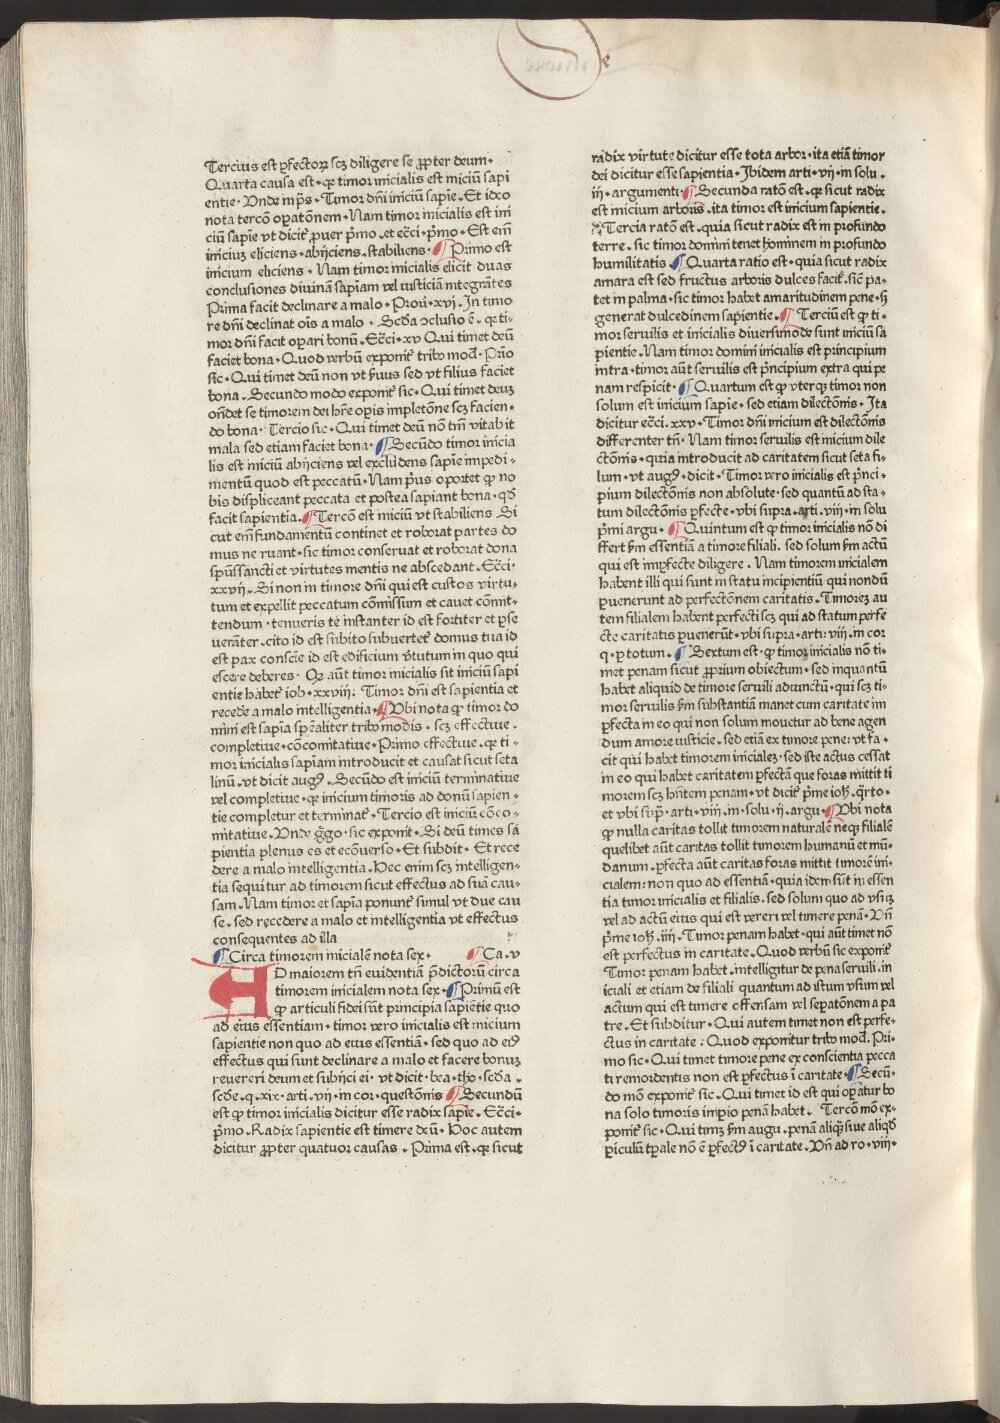 Tercius est ꝑfectoꝝ scꝫ diligere se ꝓpter deum.
Quarta causa est. qꝛ timor inicialis est iniciū sapi
entie. Unde in pˢ. Timor dn̄i iniciū sapīe. Et ideo
nota tercō oꝑatōnem. Nam timor inicialis est ini
ciū sapīe vt dicit̕ ꝓuer pͥmo. et ecc̄i. pͥmo. Est em̄
iniciuꝫ eliciens. abijciens. stabiliens. ¶ Primo est
inicium eliciens. Nam timor inicialis elicit duas
conclusiones diuinā sapiam vel iusticiā integrātes
Prima facit declinare a malo. Prou̕. xvi. In timo
re dn̄i declinat oīs a malo. Scd̄a ↄclusio ē. qꝛ ti-
mor dn̄i facit oꝑari bonū. Ecc̄i. xv Qui timet deū
faciet bona. Quod verbū exponit̕ tribꝰ mod̕. Prīo
sic. Qui timet deū non vt ẜuus sed vt filius faciet
bona. Secundo modo exponit̕ sic. Qui timet deuꝫ
on̄det se timorem dei hr̄e oꝑis impletōne scꝫ facien.
do bona. Tercio sic. Qui timet deū nō tm̄ vitabit
mala sed etiam faciet bona. ¶ Secūdo timor inicia
lis est iniciū abijciens vel excludens sapīe impedi-
mentū quod est peccatū. Nam pͥus oportet qꝙ no
bis displiceant peccata et postea sapiant bona. qd̕
facit sapientia. ¶ Tercō est iniciū vt stabiliens. Si
cut em̄ fundamentū continet et roborat partes do
mus ne ruant. sic timor conseruat et roborat dona
spūssancti et virtutes mentis ne abscedant. Ecc̄i.
xxvij. Si non in timore dn̄i qui est custos virtu-
tum et expellit peccatum cōmissum et cauet cōmit-
tendum. tenueris te instanter id est fortiter et ꝑse
ueranter. cito id est subito subuertet̕ domus tua id
est pax conscīe id est edificium v̕tutum in quo qui
escere deberes. Qꝙ aūt timor inicialis sit iniciū sapi
entie habet̕ iob. xxviij. Timor dn̄i est sapientia et
recede a malo intelligentia. ¶ Ubi nota qꝙ timor do
mini est sapīa spēaliter tribꝰ modis. scꝫ effectiue.
completiue. cōcomitatiue. Primo effectiue. qꝛ ti-
mor inicialis sapīam introducit et causat sicut seta
linū. vt dicit augꝰ. Secūdo est iniciū terminatiue
vel completiue. qꝛ inicium timoris ad donū sapien-
tie completur et terminat̕. Tercio est iniciū cōco-
mitatiue. Unde g̕go. sic exponit. Si deū times sa
pientia plenus es et ecōuerso. Et subdit. Et rece
dere a malo intelligentia. Hec enim scꝫ intelligen-
tia sequitur ad timorem sicut effectus ad suā cau-
sam. Nam timor et sapīa ponunt̕ simul vt due cau
se. sed recedere a malo et intelligentia vt effectus
consequentes ad illa
¶ Circa timorem inicialē nota sex. ¶ Ca. v
AD maiorem tn̄ euidentiā p̄dictorū circa
timorem inicialem nota sex. ¶ Primū est
qꝙ articuli fidei sūt principia sapiētie quo
ad eius essentiam. timor vero inicialis est inicium
sapientie non quo ad eius essentiā. sed quo ad eiꝰ
effectus qui sunt declinare a malo et facere bonuꝫ
reuereri deum et subijci ei. vt dicit. bea. tho. scd̄a.
scd̄e. q. xix. arti. vij. in cor. questōnis ¶ Secundū
est qꝙ timor inicialis dicitur esse radix sapīe. Ecc̄i.
pͥmo. Radix sapientie est timere deū. Hoc autem
dicitur ꝓpter quatuor causas. Prima est. qꝛ sicut
radix virtute dicitur esse tota arbor. ita etiā timor
dei dicitur esse sapientia. Ibidem arti. vij. in solu.
iij. argumenti. ¶ Secunda ratō est. qꝛ sicut radix
est inicium arboris. ita timor est inicium sapientie.
Tercia ratō est. quia sicut radix est in profundo
terre. sic timor domini tenet hominem in profundo
humilitatis ¶ Quarta ratio est. quia sicut radix
amara est sed fructus arboris dulces facit. sic̄ pa-
tet in palma. sic timor habet amaritudinem pene. sꝫ
generat dulcedinem sapientie. ¶ Terciū est qꝙ ti-
mor seruilis et inicialis diuersimode sunt iniciū sa
pientie. Nam timor domini inicialis est principium
intra. timor aūt seruilis est pͥncipium extra qui pe
nam respicit. ¶ Quartum est qꝙ vterqꝫ timor non
solum est inicium sapīe. sed etiam dilectōnis. Ita
dicitur ecc̄i. xxv. Timor dn̄i inicium est dilectōnis
differenter tn̄. Nam timor seruilis est inicium dile
ctōnis. quia introducit ad caritatem sicut seta fi-
lum. vt augꝰ. dicit. Timor vero inicialis est pͥnci.
pium dilectōnis non absolute. sed quantū ad sta-
tum dilectōnis ꝑfecte. vbi supra. arti. viij. in solu
pͥmi argu. ¶ Quintum est qꝙ timor inicialis nō di
ffert ẜm essentiā a timore filiali. sed solum ẜm actū
qui est imꝑfecte diligere. Nam timorem inicialem
habent illi qui sunt in statu incipientiū qui nondū
ꝑuenerunt ad perfectōnem caritatis. Timoreꝫ au
tem filialem habent perfecti scꝫ qui ad statum perfe
cte caritatis ꝑuenerūt. vbi supra. arti. viij. in cor
q. ꝑ totum. ¶ Sextum est. qꝙ timor inicialis nō ti-
met penam sicut ꝓprium obiectum. sed inquantū
habet aliquid de timore seruili adiunctū. qui scꝫ ti-
mor seruilis ẜm substantiā manet cum caritate im
ꝑfecta in eo qui non solum mouetur ad bene agen
dum amore iusticie. sed etiā ex timore pene. vt fa.
cit qui habet timorem inicialeꝫ. sed iste actus cessat
in eo qui habet caritatem ꝑfectā que foras mittit ti
morem scꝫ hn̄tem penam. vt dicit̕ pͥme ioh. q̕rto.
et vbi supͣ. arti. viij. in. solu. ij. argu. ¶ Ubi nota
qꝙ nulla caritas tollit timorem naturalē neqꝫ filialē
quelibet aūt caritas tollit timorem humanū et mū.
danum. ꝑfecta aūt caritas foras mittit timorē ini.
cialem: non quo ad essentiā. quia idem sūt in essen
tia timor inicialis et filialis. sed solum quo ad vsuꝫ
vel ad actū eius qui est vereri vel timere penā. Un̄
pͥme ioh. iiij. Timor penam habet. qui aūt timet nō
est perfectus in caritate. Quod verbū sic exponit̕
Timor penam habet. intelligitur de pena seruili. in
iciali et etiam de filiali quantum ad istum vsum vel
actum qui est timere offensam vel seꝑatōnem a pa
tre. Et subditur. Qui autem timet non est perfe-
ctus in caritate: Quod exponitur tribꝰ mod̕. Pri-
mo sic. Qui timet timore pene ex conscientia pecca
ti remordentis non est ꝑfectus ī caritate. ¶ Secū.
do mō exponit̕ sic. Qui timet id est qui oꝑatur bo
na solo timoris imꝑio penā habet. Tercō mō ex-
ponit̕ sic. Qui timꝫ ẜm augu. penā aliqͣ siue aliqd̕
ꝑiculū tꝑale nō ē ꝑfectꝰ ī caritate. Un̄ ad ro. viij.